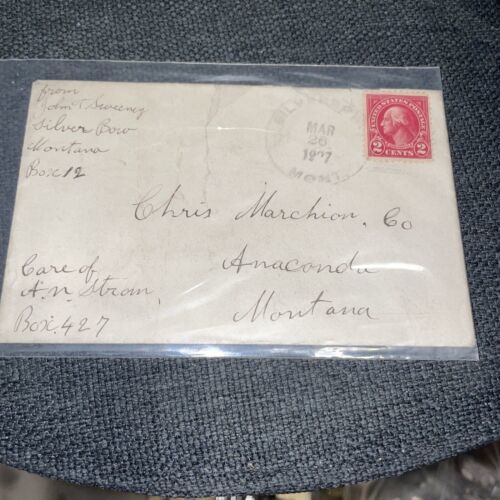 from
Sweeney
Silver Bow
Montana
Box 12
MAR
26
MONT.
UNITED STATES POSTAGE
2 CENTS 2
Chris Marchion, Co
Anaconda
Montana
Care of
A.N. Strom,
Box 427